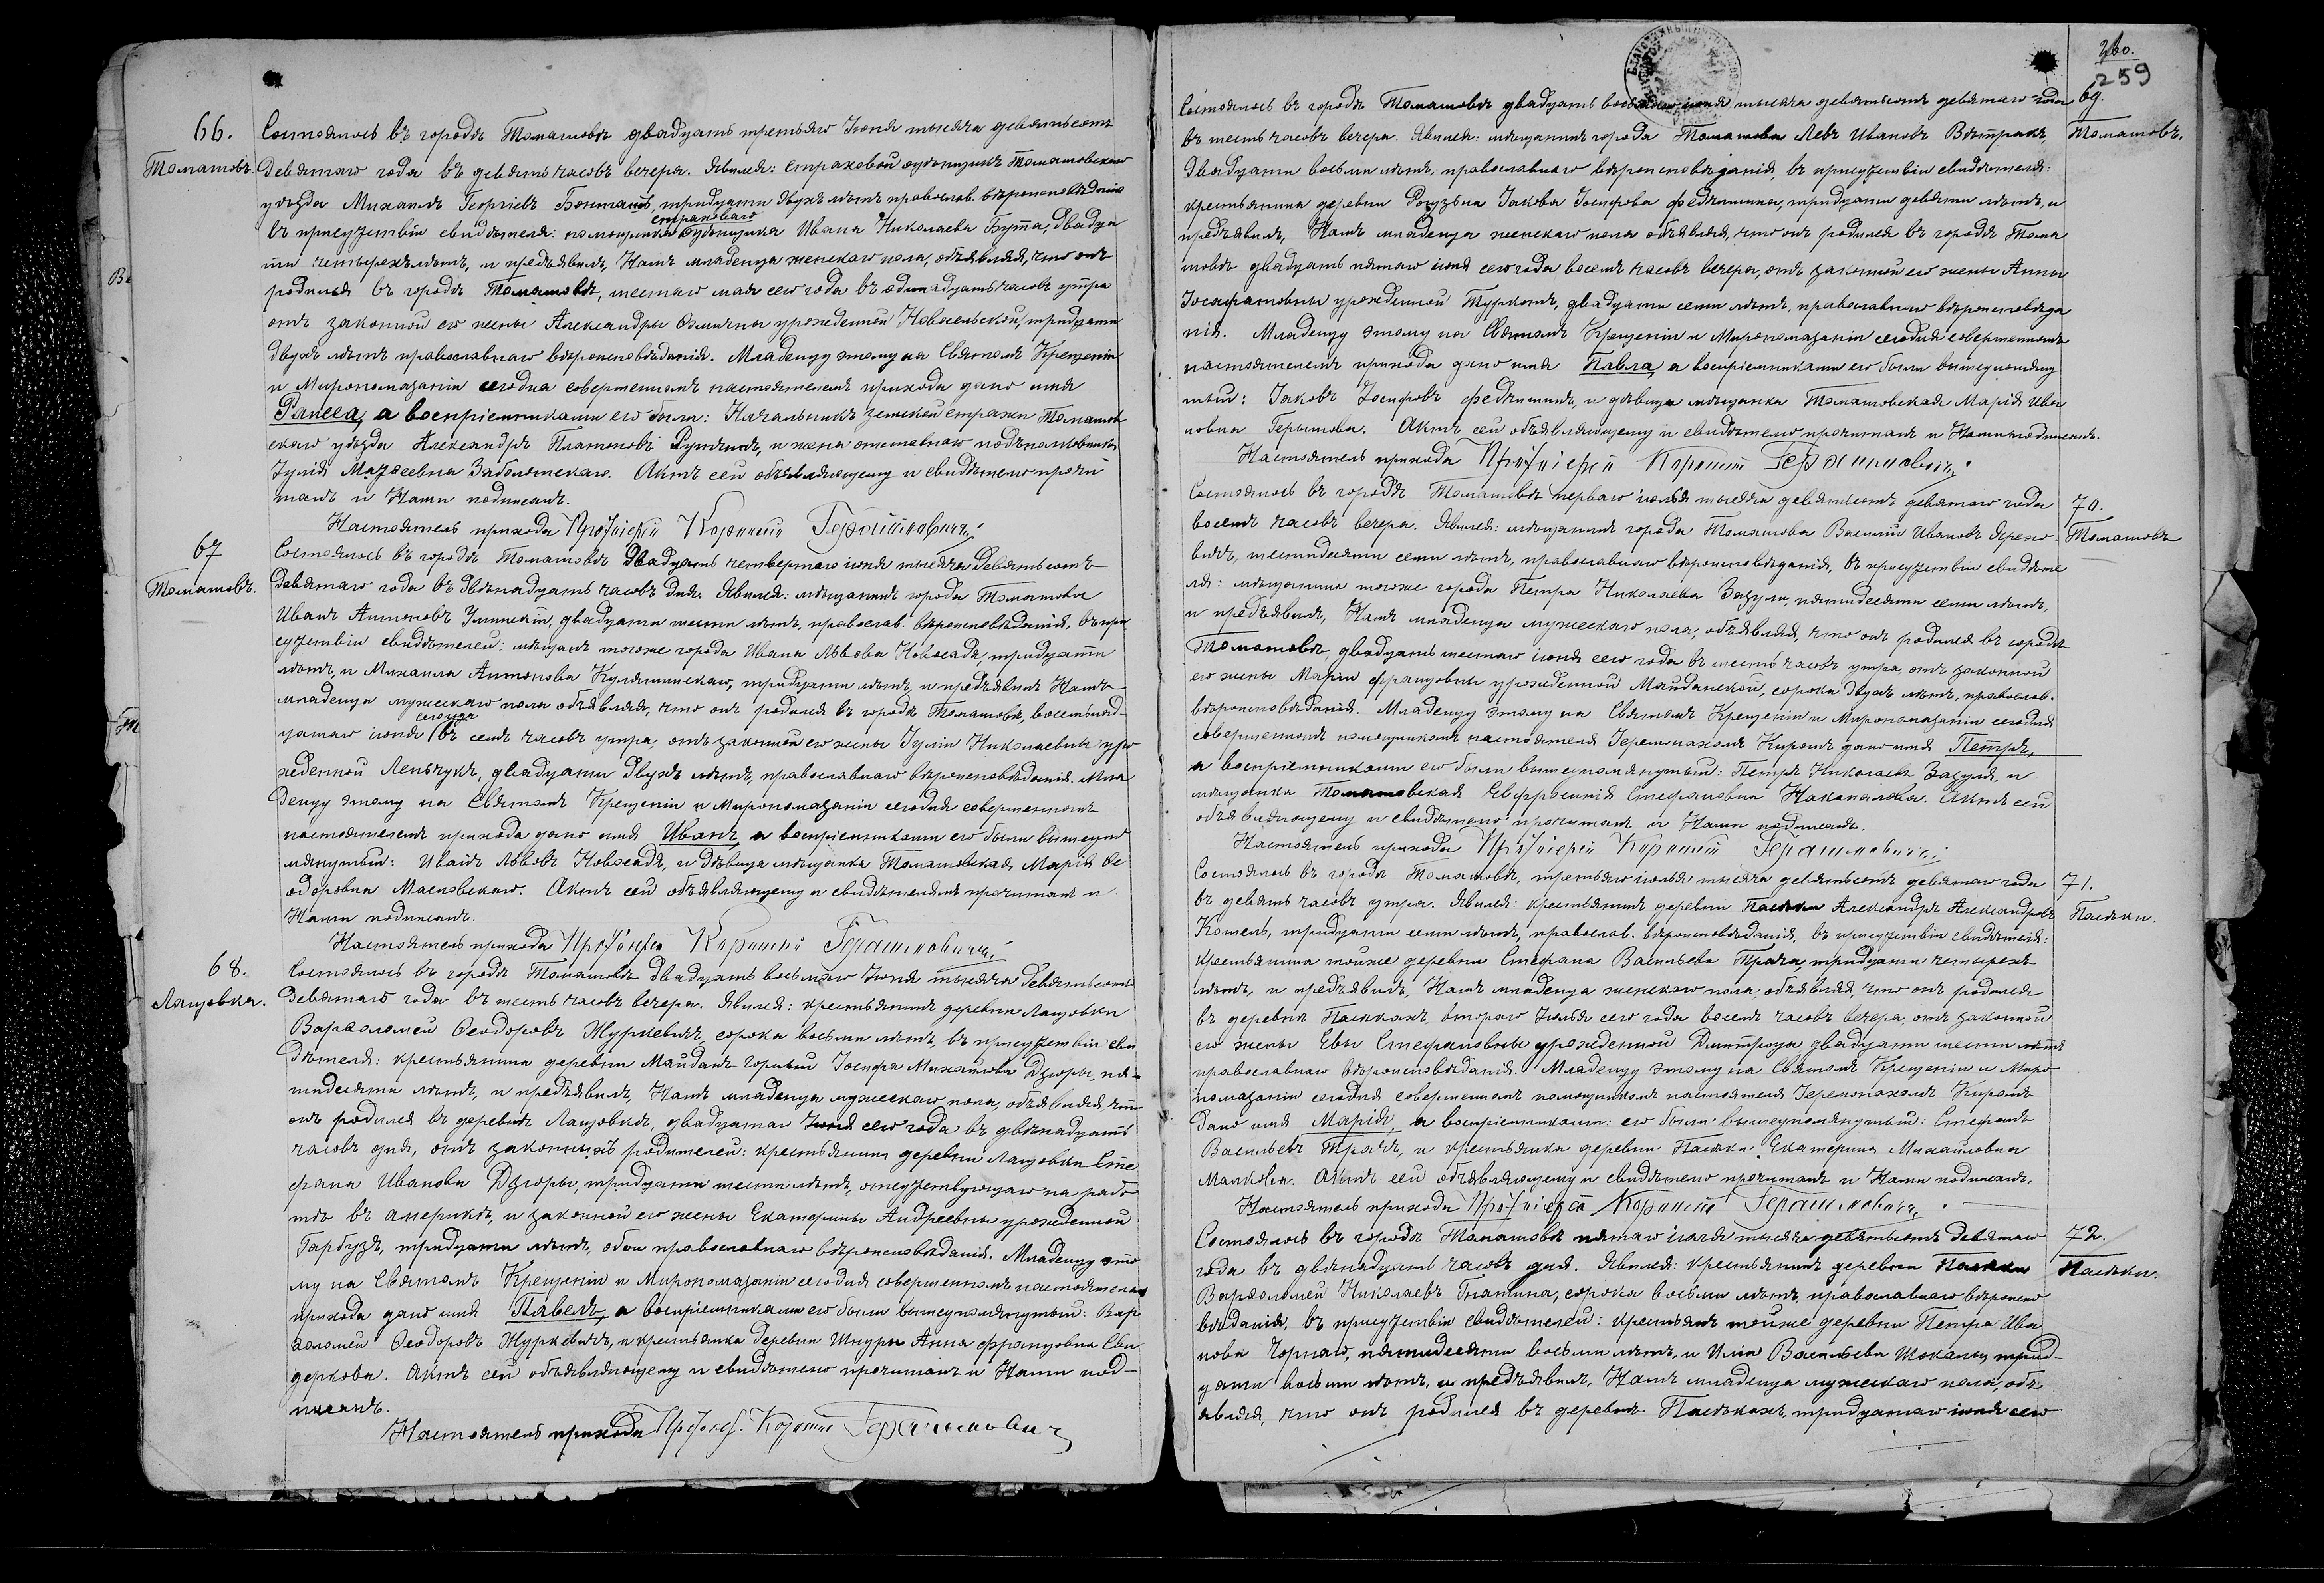 66.
Томашовъ.
Состоялось въ городѣ Томашовѣ двадцать третьяго Іюня тысяча девятьсотъ
девятаго года въ девять часовъ вечера. Явился: страховой
уѣзда Михаилъ Георгіевъ тридцати двухъ лѣтъ православ. вѣроисповѣданія
страховаго
въ присутствіи свидѣтеля: помощника Ивана Николаева Бутта, двадца
ти четырехъ лѣтъ, и предъявилъ Намъ младенца женскаго пола, объявляя, что онъ
родился въ городѣ Томашовѣ, шестаго мая сего года въ одинадцать часовъ утра
отъ законной его жены Александры урожденной Новосельской, тридцати
двухъ лѣтъ православнаго вѣроисповѣданія. Младенцу этому на Святомъ Крещеніи
и Миропомазаніи сегодня совершенномъ настоятелемъ прихода дано имя
Раиса, а воспріемниками его были: Начальникъ земской стражи Томашов
скаго уѣзда Александръ Платоновъ и жена отставнаго подполковника
Іулія Заболотская. Актъ сей объявляющему и свидѣтелю прочи
танъ и Нами подписанъ.
Настоятель прихода Протоіерей Корнилій Герашимовичъ
67
Томашовъ.
Состоялось въ городѣ Томашовѣ двадцать четвертаго іюня тысяча девятьсотъ
девятаго года въ двѣнадцать часовъ дня. Явился: мѣщанинъ города Томашова
Иванъ Антоновъ двадцати шести лѣтъ, православ. вѣроисповѣданія, въ при
сутствіи свидѣтелей: мѣщанъ тогоже города Ивана Львова Новосада, тридцати
лѣтъ, и Михаила Антонова тридцати лѣтъ, и предъявилъ Намъ
младенца мужескаго пола объявляя, что онъ родился въ городѣ Томашовѣ, восемьнад-
сего года
цатаго іюня въ семь часовъ утра, отъ законной его жены Іуліи Николаевны уро
жденной Леньчукъ, двадцати двухъ лѣтъ, православнаго вѣроисповѣданія. Мла
денцу этому на Святомъ Крещеніи и Миропомазаніи сегодня совершенномъ
настоятелемъ прихода дано имя Иванъ, а воспріемниками его были вышеупо
мянутый: Иванъ Львовъ Новосадъ, и дѣвица мѣщанка Томашовская, Марія Ѳе
одоровна Масловская. Актъ сей объявляющему и свидѣтелямъ прочитанъ и
Нами подписанъ.
Настоятель прихода Протоіерей Корнилій Герашимовичъ
68.
Лащовка.
Состоялось въ городѣ Томашовѣ двадцать восьмаго Іюня тысяча девятьсотъ
девятаго года въ шесть часовъ вечера. Явился: крестьянинъ деревни Лащовки
Варѳоломей Ѳеодоровъ Журкевичъ, сорока восьми лѣтъ, въ присутствіи сви
дѣтеля: крестьянина деревни Майданъ-горный Іосифа Михайлова Дзюры, пя-
тидесяти лѣтъ, и предъявилъ, Намъ младенца мужескаго пола, объявляя, что
онъ родился въ деревнѣ Лащовкѣ, двадцатаго Іюня сего года въ двѣнадцать
часовъ дня, отъ законныхъ родителей: крестьянина деревни Лащовки Сте
фана Иванова Дзюры, тридцати шести лѣтъ, отсутствующаго на рабо
тѣ въ америкѣ, и законной его жены Екатерины Андреевны урожденной
Гарбузъ, тридцати лѣтъ, обои православнаго вѣроисповѣданія. Младенцу это
му на Святомъ Крещеніи и Миропомазаніи сегодня совершенномъ настоятелемъ
прихода дано имя Павелъ, а воспріемниками его были вышеупомянутый: Вар
ѳоломей Ѳеодоровъ Журкевичъ, и крестьянка деревни Анна Францовна Сви
деркова. Актъ сей объявляющему и свидѣтелю прочитанъ и Нами под-
писанъ.
Настоятель прихода Протоіер. Корнилій Герашимовичъ
260.
259
69.
Томашовъ.
Состоялось въ городѣ Томашовѣ двадцать восьмаго іюня тысяча девятьсотъ девятаго года
въ шесть часовъ вечера. Явился: мѣщанинъ города Томашова Левъ Ивановъ Вѣтракъ,
двадцати восьми лѣтъ, православнаго вѣроисповѣданія, въ присутствіи свидѣтеля:
крестьянина деревни Рогузьна Іакова Іосифова Федчишина, тридцати девяти лѣтъ, и
предъявилъ, Намъ младенца женскаго пола объявляя, что онъ родился въ городѣ Тома
шовѣ двадцать пятаго іюня сего года восемь часовъ вечера, отъ законной его жены Анны
Іосафатовны урожденной Туркотъ, двадцати семи лѣтъ, православнаго вѣроисповѣда
нія. Младенцу этому на Святомъ Крещеніи и Миропомазаніи сегодня совершенномъ
настоятелемъ прихода дано имя Павла, а воспріемниками его были вышеупомяну
тый: Іаковъ Іосифовъ Федчишинъ, и дѣвица мѣщанка Томашовская Марія Ива
новна Герылова. Актъ сей объявляющему и свидѣтелю прочитанъ и Нами подписанъ.
Настоятель прихода Протоіерей Корнилій Герашимовичъ
70.
Томашовъ
Состоялось въ городѣ Томашовѣ перваго іюля тысяча девятьсотъ девятаго года
восемь часовъ вечера. Явился: мѣщанинъ города Томашова Василій Ивановъ
вичъ, шестидесяти семи лѣтъ, православнаго вѣроисповѣданія, въ присутствіи свидѣте
ля: мѣщанина тогоже города Петра Николаева Зазули, пятидесяти семи лѣтъ,
и предъявилъ, Намъ младенца мужескаго пола, объявляя, что онъ родился въ городѣ
Томашовѣ, двадцать шестаго іюня сего года въ шесть часовъ утра, отъ законной
его жены Маріи Францовны урожденной Майданской, сорока двухъ лѣтъ, православ.
вѣроисповѣданія. Младенцу этому на Святомъ Крещеніи и Миропомазаніи сегодня
совершенномъ помощникомъ настоятеля Іеромонахомъ Киромъ дано имя Петръ,
а воспріемниками его были вышеупомянутый: Петръ Николаевъ Зазуля, и
мѣщанка Томашовская Евфросинія Стефановна Наконалова. Актъ сей
объявляющему и свидѣтелю прочитанъ и Нами подписанъ.
Настоятель прихода Протоіерей Корнилій Герашимовичъ
71.
Пасѣки.
Состоялось въ городѣ Томашовѣ, третьяго іюля тысяча девятьсотъ девятаго года
въ девять часовъ утра. Явился: крестьянинъ деревни Пасѣки Александръ Александровъ
Котель, тридцати семи лѣтъ, православ. вѣроисповѣданія, въ присутствіи свидѣтеля:
крестьянина тойже деревни Стефана Васильева Трача, тридцати четырехъ
лѣтъ, и предъявилъ, Намъ младенца женскаго пола, объявляя, что онъ родился
въ деревнѣ Пасѣкахъ, втораго Іюля сего года восемь часовъ вечера, отъ законной
его жены Евы Стефановны урожденной Дмитроца двадцати шести лѣтъ
православнаго вѣроисповѣданія. Младенцу этому на Святомъ Крещеніи и Миро-
помазаніи сегодня совершенномъ помощникомъ настоятеля Іеромонахомъ Киромъ
дано имя Марія, а воспріемниками его были вышеупомянутый: Стефанъ
Васильевъ Трачъ, и крестьянка деревни Пасѣки Екатерина Михайловна
Малкова. Актъ сей объявляющему и свидѣтелю прочитанъ и Нами подписанъ.
Настоятель прихода Протоіерей Корнилій Герашимовичъ
72.
Пасѣки.
Состоялось въ городѣ Томашовѣ пятаго іюля тысяча девятьсотъ девятаго
года въ двѣнадцать часовъ дня. Явился: крестьянинъ деревни Пасѣки
Варѳоломей Николаевъ Гнатина, сорока восьми лѣтъ, православнаго вѣроиспо
вѣданія, въ присутствіи свидѣтелей: крестьянъ тойже деревни Петра Ива
нова Чорнаго, пятидесяти восьми лѣтъ, и Иліи Васильева трид-
цати восьми лѣтъ, и предъявилъ, Намъ младенца мужескаго пола, объ
являя, что онъ родился въ деревнѣ Пасѣкахъ, тридцатаго іюня сего